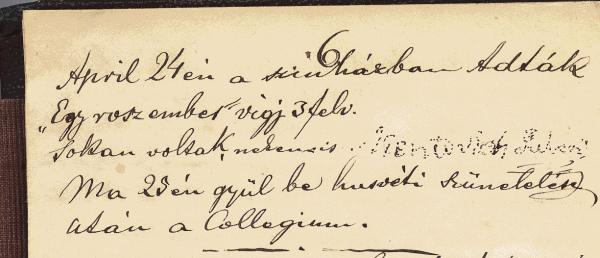 6
April 24én a szinházban Adták
„Egy rosz ember" vigj 3 felv.
Sokan voltak, nekem is
Ma 23én gyül be husvéti szünetelés
után a Collegium.